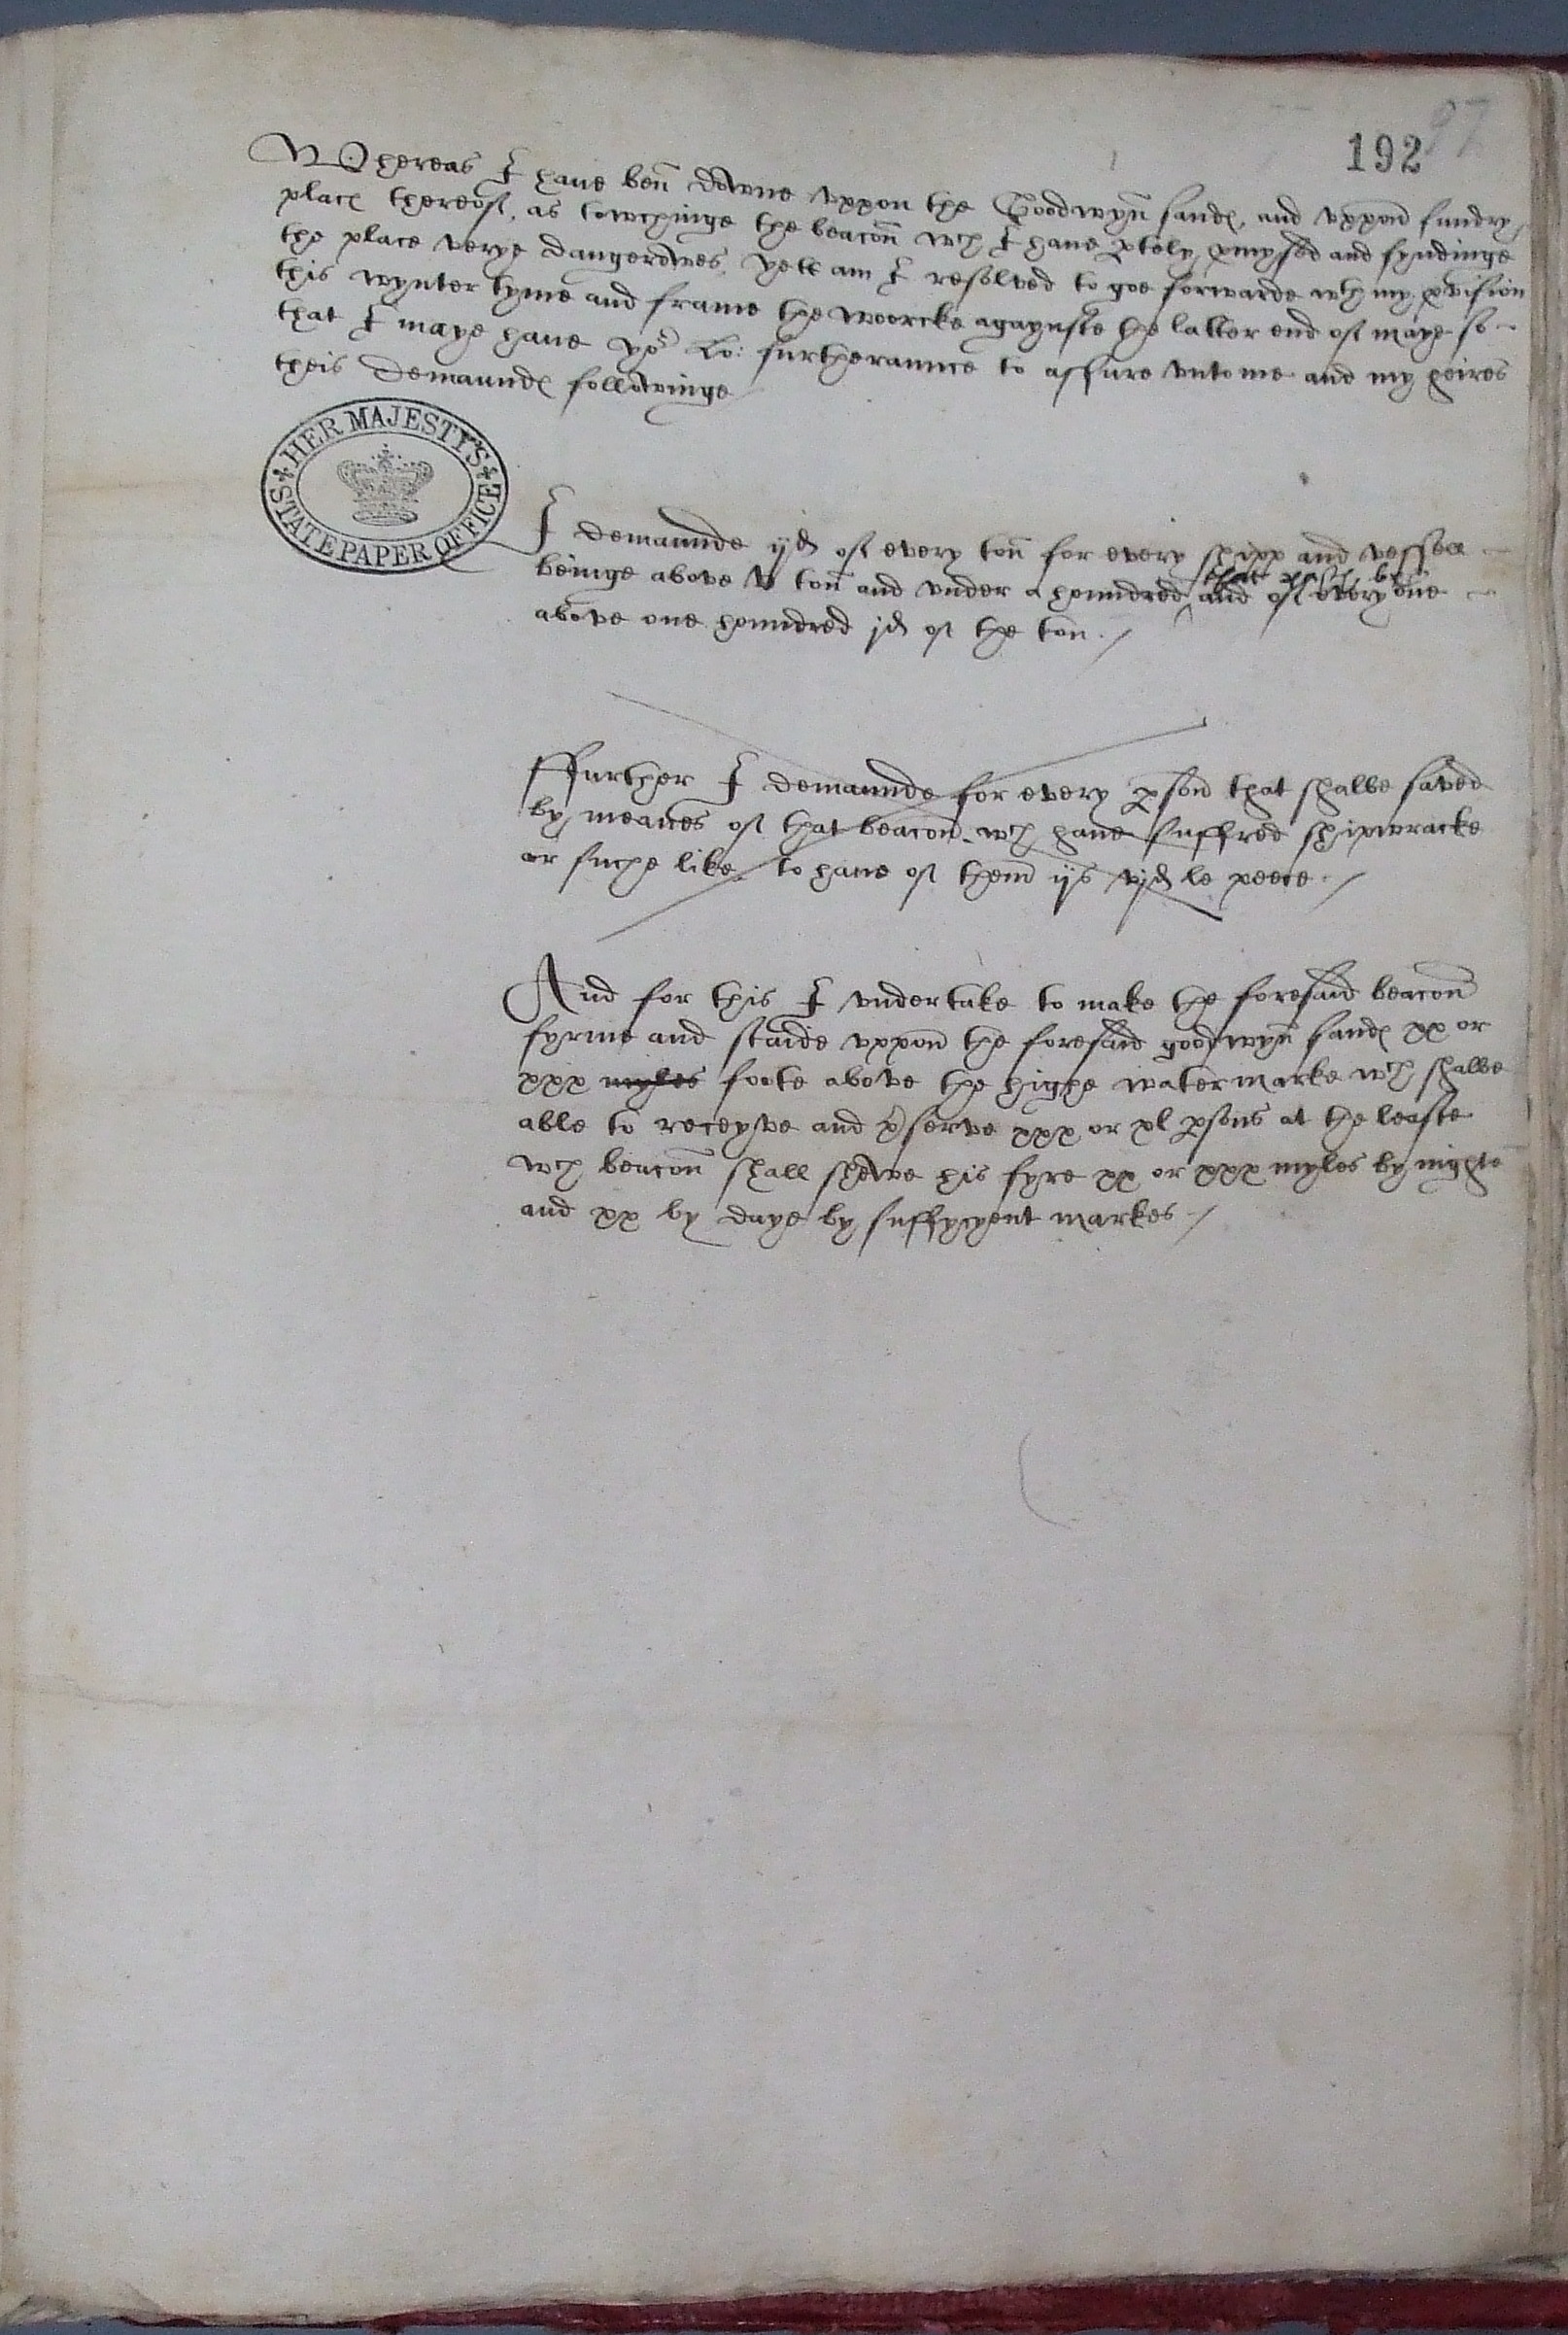 192 97
Whereas I haue ben downe vppon the Goodwyn sandes, and vppon sundry
places thereof, as towchinge the beacon wch I haue ptely pmysed and fyndinge
the place verye dangerowes, yett am I resolved to goe forwarde wth my pvision
this wynter tyme and frame the woorcke agaynste the latter end of maye so
that I maye haue yor Lo: furtheraunce to assure vnto me and my heires
theis demaundes followinge
HER MAJESTY'S STATE PAPER OFFICE
I demaunde ijd of every ton for every shipp and vessell
that passeth by
beinge above v ton and vnder a houndred and of every one
above one houndred jd of the ton. /
Ffurther I demaunde for every pson that shalbe saved
by meanes of that beacon wch haue suffred shipwracke
or suche like, to haue of them ijs vjd le peece. /
And for this I vndertake to make the foresaid beacon
fyrme and staide vppon the foresaid goodwyn sandes xx or
xxx myles foote above the highe water marke wch shalbe
able to receyve and pserve xxx or xl psons at the leaste
wch beacon shall shewe his fyre xx or xxx myles by nighte
and xx by daye by suffycyent markes /